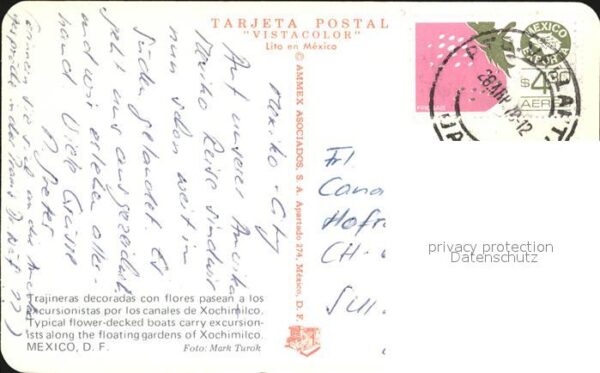 TARJETA POSTAL
"VISTACOLOR"
Lito en México
© AMMEX ASOCIADOS, S. A. Apartado 274, México, D. F.
MEXICO
EXPORTA
$4.30
AEREO
Mexiko-City
Auf unserer Amerika-
Mexiko Reise sind wir
nun schon weit im
Süden gelandet. Es
geht uns ausgezeichnet
und wir erleben aller-
hand. Viele Grüsse
Frl.
CH-
privacy protection
Datenschutz
Trajineras decoradas con flores pasean a los
excursionistas por los canales de Xochimilco.
Typical flower-decked boats carry excursion-
ists along the floating gardens of Xochimilco.
MEXICO, D. F.
Foto: Mark Turok